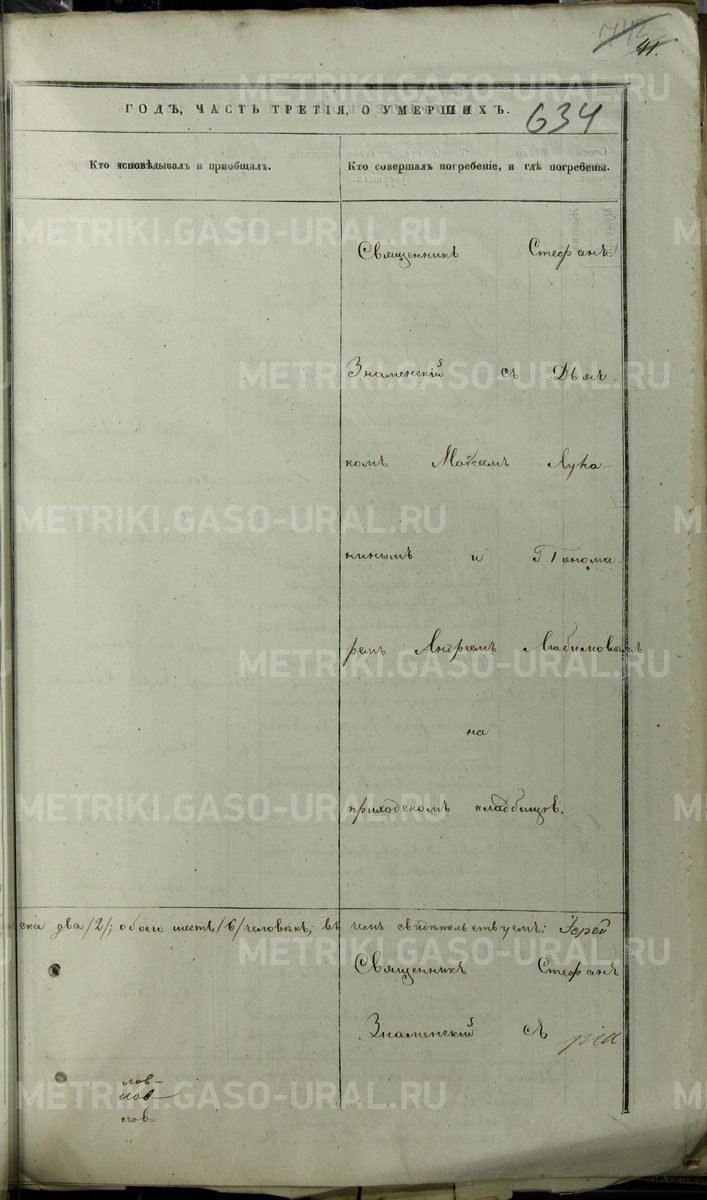 41.
ГОДЪ, ЧАСТЬ ТРЕТІЯ, О УМЕРШИХЪ.
634
Кто исповѣдывалъ и пріобщалъ.
Кто совершалъ погребеніе, и гдѣ погребены.
METRIKI.GASO-URAL.RU
Священникъ Стефанъ
Знаменскій съ Дьяч-
комъ Моѵсеемъ Лука-
нинымъ и Понома-
ремъ Андреемъ Любимовымъ
на
приходскомъ кладбищѣ.
ска два /2/; обоего шесть /6/ человѣкъ; въ чемъ свидѣтельствуемъ: Іерей
Священникъ Стефанъ
Знаменскій съ
лов-
лов-